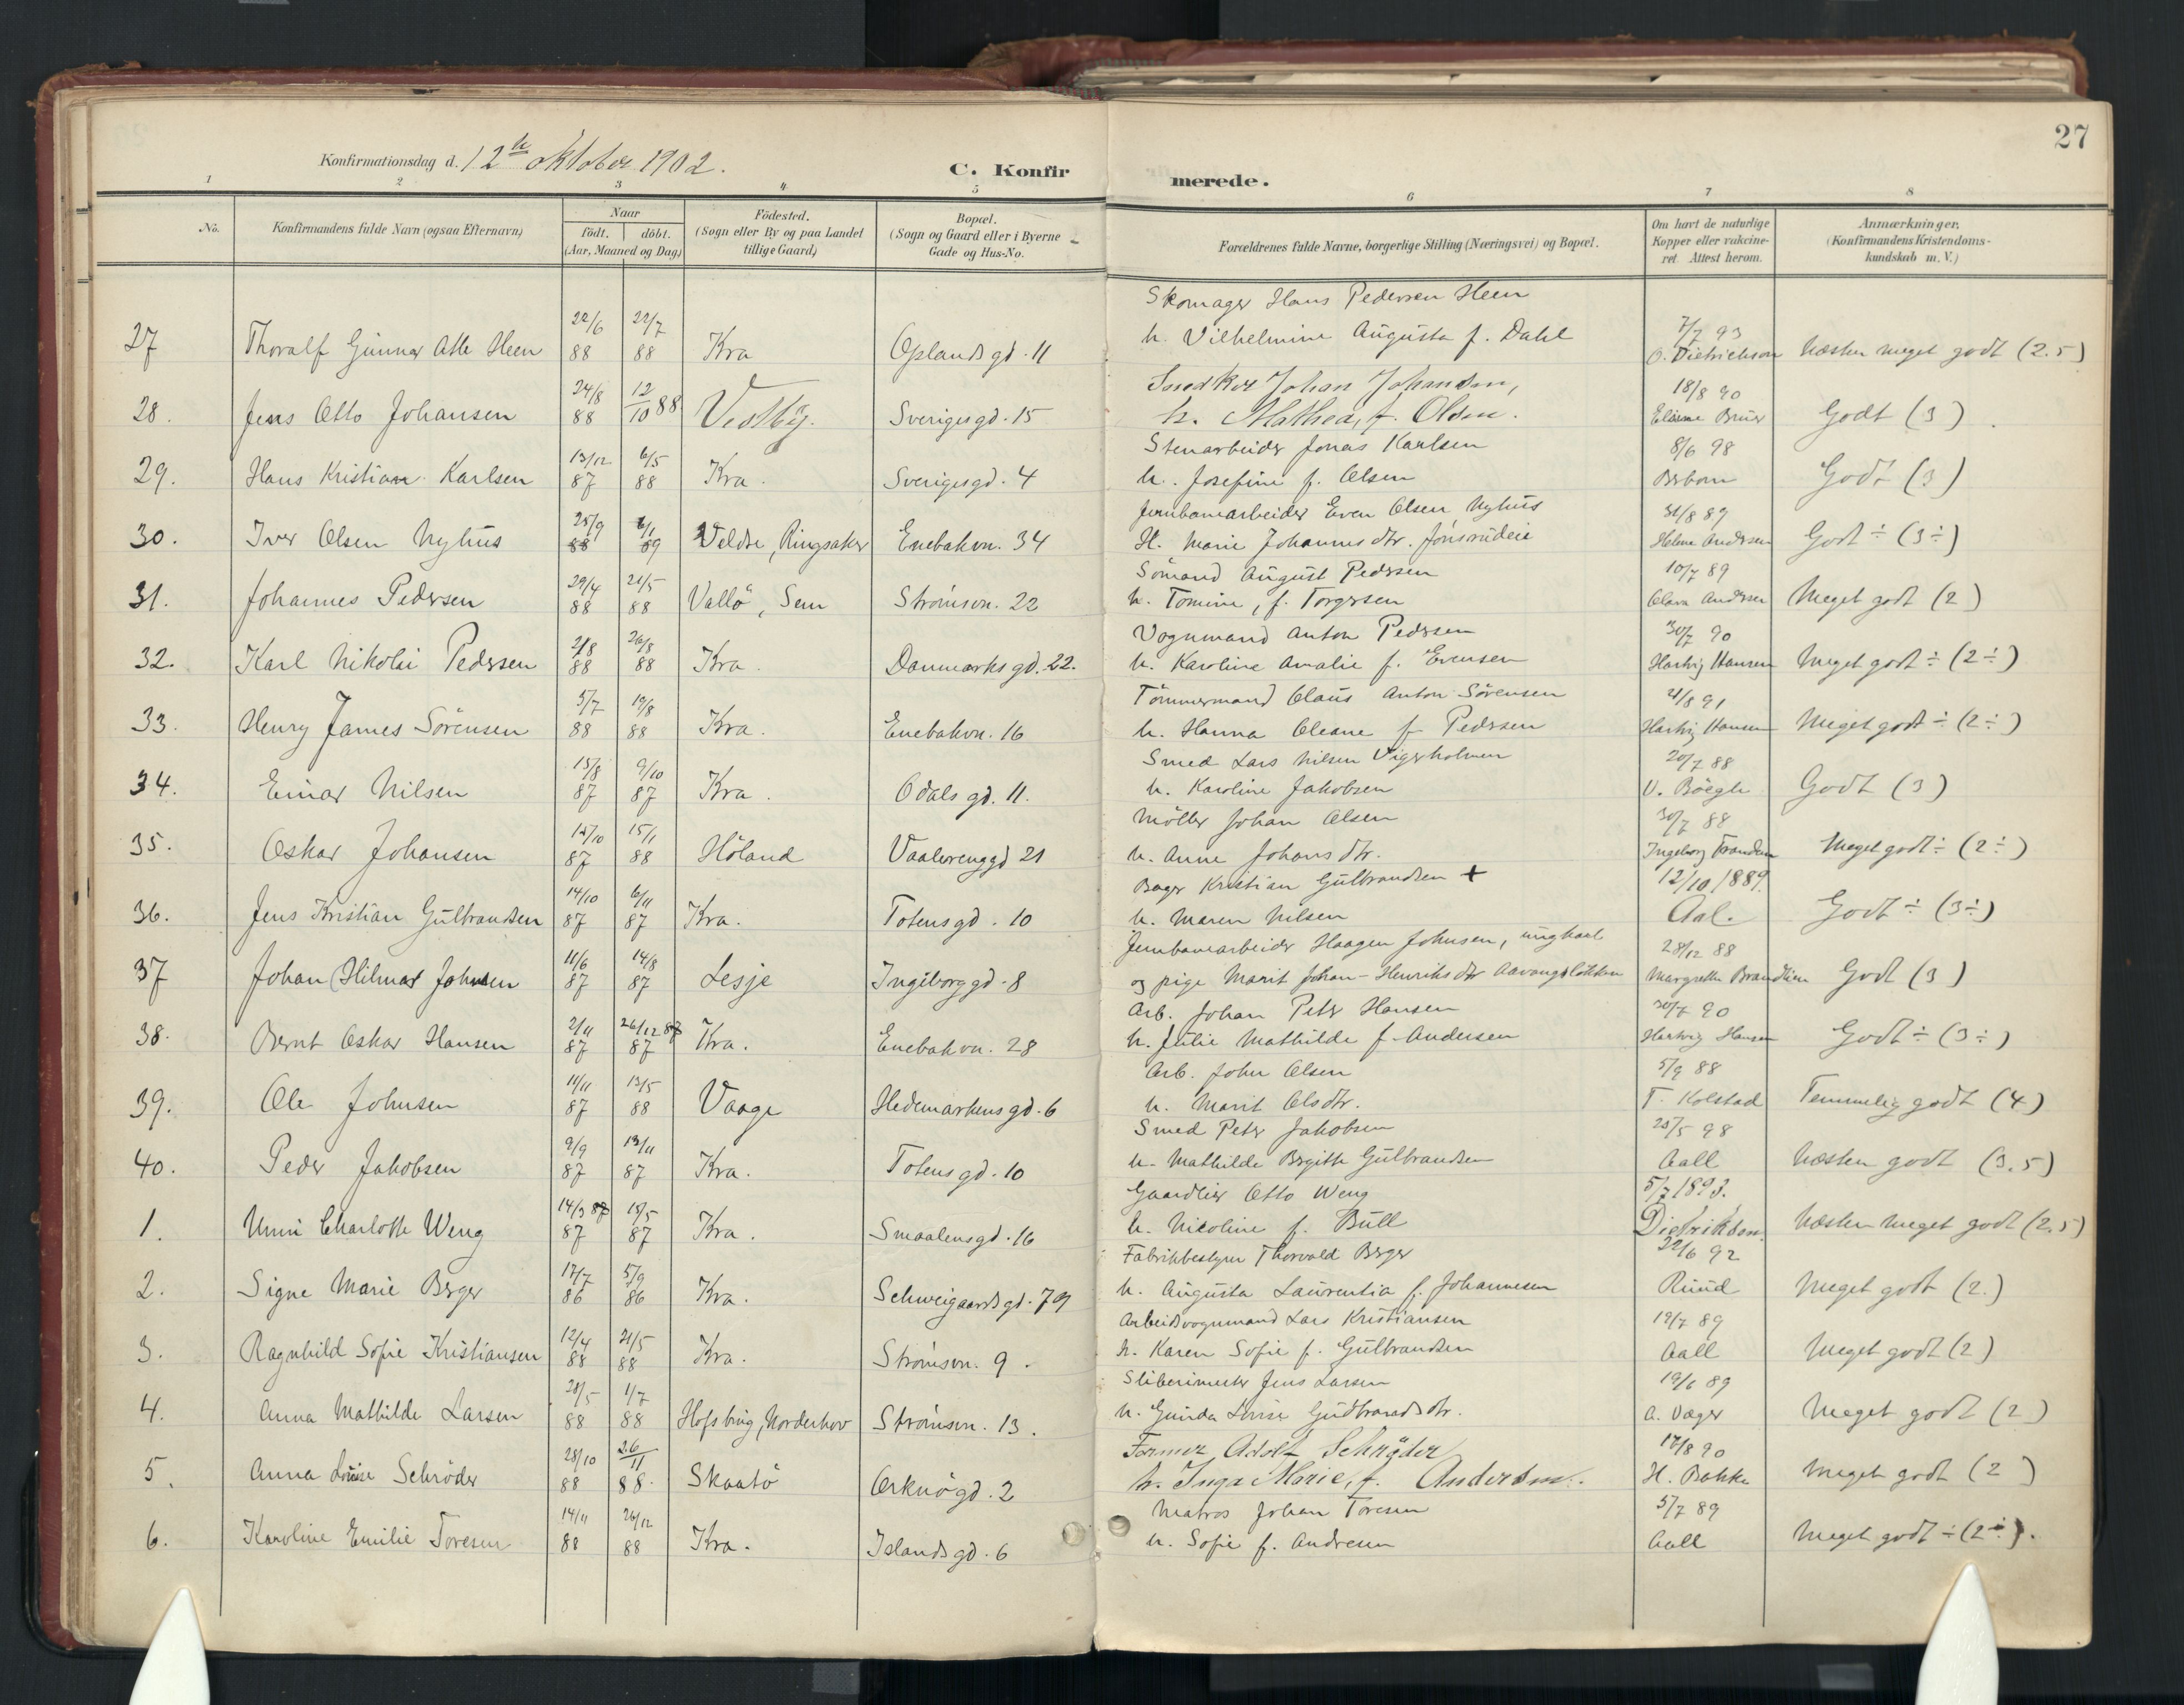 27
Konfirmationsdag d. 12te oktober 1902.
C. Konfirmerede.
1 2 3 4 5 6 7 8
No.
Konfirmandens fulde Navn (ogsaa Efternavn)
Naar
födt. döbt.
(Aar, Maaned og Dag)
Födested.
(Sogn eller By og paa Landet
tillige Gaard)
Bopæl.
(Sogn og Gaard eller i Byerne
Gade og Hus-No.
Forældrenes fulde Navne, borgerlige Stilling (Næringsvei) og Bopæl.
Om havt de naturlige
Kopper eller vakcine-
ret. Attest herom.
Anmærkninger.
(Konfirmandens Kristendoms-
kundskab m. V.)
Skomager Hans Pedersen Heen
22/6 22/7 7/7 93
27 Thoralf Gunnar Atle Heen 88 88 Kra Oplandsgd. 11 h. Vilhelmine Augusta f. Dahl O. Dietrichson Næsten meget godt (2.5)
24/8 12/10 88 Snedker Johan Johansen, 18/8 90
28. Jens Otto Johansen 88 Vestby. Sverigesgd. 15 h. Mathea, f. Olsen. Bruer Godt (3)
13/12 6/5 Stenarbeider Jonas Karlsen 8/6 98
29. Hans Kristian Karlsen 87 88 Kra. Sverigesgd. 4 h. Josefine f. Olsen Godt (3)
25/9 6/1 Jernbanearbeider Even Olsen Nyhus 31/8 89
30. Iver Olsen Nyhus 88 89 Veldre, Ringsaker Enebakvn. 34 H. Marie Johannesdtr. Jönsrudeie Helene Andersen Godt ÷ (3÷)
29/4 21/5 Sömand August Pedersen 10/7 89
31. Johannes Pedersen 88 88 Vallö, Sem Strömsvn. 22 h. Tomine, f. Torgersen Clara Andersen Meget godt (2)
2/8 26/8 Vognmand Anton Pedersen 30/7 90
32. Karl Nikolai Pedersen 88 88 Kra. Danmarksgd. 22. h. Karoline Amalie f. Evensen Hartvig Hansen Meget godt ÷ (2÷)
5/7 19/8 Tömmermand Claus Anton Sörensen 21/8 91
33. Henry James Sörensen 88 88 Kra. Enebakvn. 16 h. Hanna Oleane f. Pedersen Hartvig Hansen Meget godt ÷ (2÷)
15/8 9/10 Smed Lars Nilsen Vigerholmen 20/7 88
34. Einar Nilsen 87 87 Kra. Odalsgd. 11. h. Karoline Jakobsen V. Böegh Godt (3)
15/1 Möller Johan Olsen 30/7 88
35. Oskar Johansen 87 88 Höland Vaalerenggd 21 h. Anne Johansdtr. Ingeborg Meget godt ÷ (2÷)
14/10 6/11 Bager Kristian Gulbrandsen + 12/10 1889.
36. Jens Kristian Gulbrandsen 87 87 Kra. Totensgd. 10 h. Maren Nilsen Aal. Godt ÷ (3÷)
11/6 14/8 Jernbanearbeider Haagen Johnsen, ungkarl 28/12 88
37 Johan (Hilmar Johnsen 87 87 Lesje Ingeborggd. 8 og pige Marit Johan-Henriksdtr Aavangslökken Margrethe Godt (3)
2/11 26/12 87 Arb. Johan Peter Hansen 30/7 90
38. Bernt Oskar Hansen 87 87 Kra. Enebakvn. 28 h. Julie Mathilde f. Andersen Hartvig Hansen Godt ÷ (3÷)
11/11 13/5 Arb. John Olsen 5/9 88
39. Ole Johnsen 87 88 Vaage Hedemarkensgd. 6 h. Marit Olsdtr. T. Kolstad Temmelig godt (4)
9/9 13/11 Smed Peter Jakobsen 25/5 98
40. Peder Jakobsen 87 87 Kra. Totensgd. 10 h. Mathilde Birgitte Gulbrandsen Aall Næsten godt (3.5)
14/3 87 15/5 Otto Weng 5/7 1893.
1. Unni Charlotte Weng 87 87 Kra. Smaalensgd. 16 h. Nicoline f. Bull Dietrikson. Næsten meget godt (2.5)
17/7 5/9 Fabrikbestyrer Thorvald Berger 22/6 92
2. Signe Marie Berger 86 86 Kra. Schweigaardsgd. 79 h. Augusta Laurentia f. Johannesen Ruud Meget godt (2.)
12/4 21/5 Arbeidsvognmand Lars Kristiansen 19/7 89
3. Ragnhild Sofie Kristiansen 88 88 Kra. Strömsvn. 9. h. Karen Sofie f. Gulbrandsen Aall Meget godt (2)
28/5 1/7 Sliberimester Jens Larsen 19/6 89
4. Anna Mathilde Larsen 88 88 Norderhov Strömsvn. 13. h. Gunda Lovise Gudbrandsdtr. A. Vager Meget godt (2)
28/10 26/11 Former Adolf Schrøder 17/8 90
5. Anna Louise Schröder 88 88. Skaatö Orknögd. 2 h. Inga Marie, f. Andersen. H. Bakke Meget godt (2)
14/11 26/12 Matros Johan Toresen 5/7 89
6. Karoline Emilie Toresen 88 88 Kra. Islandsgd. 6 h. Sofie f. Andresen Aall Meget godt ÷ (2÷).